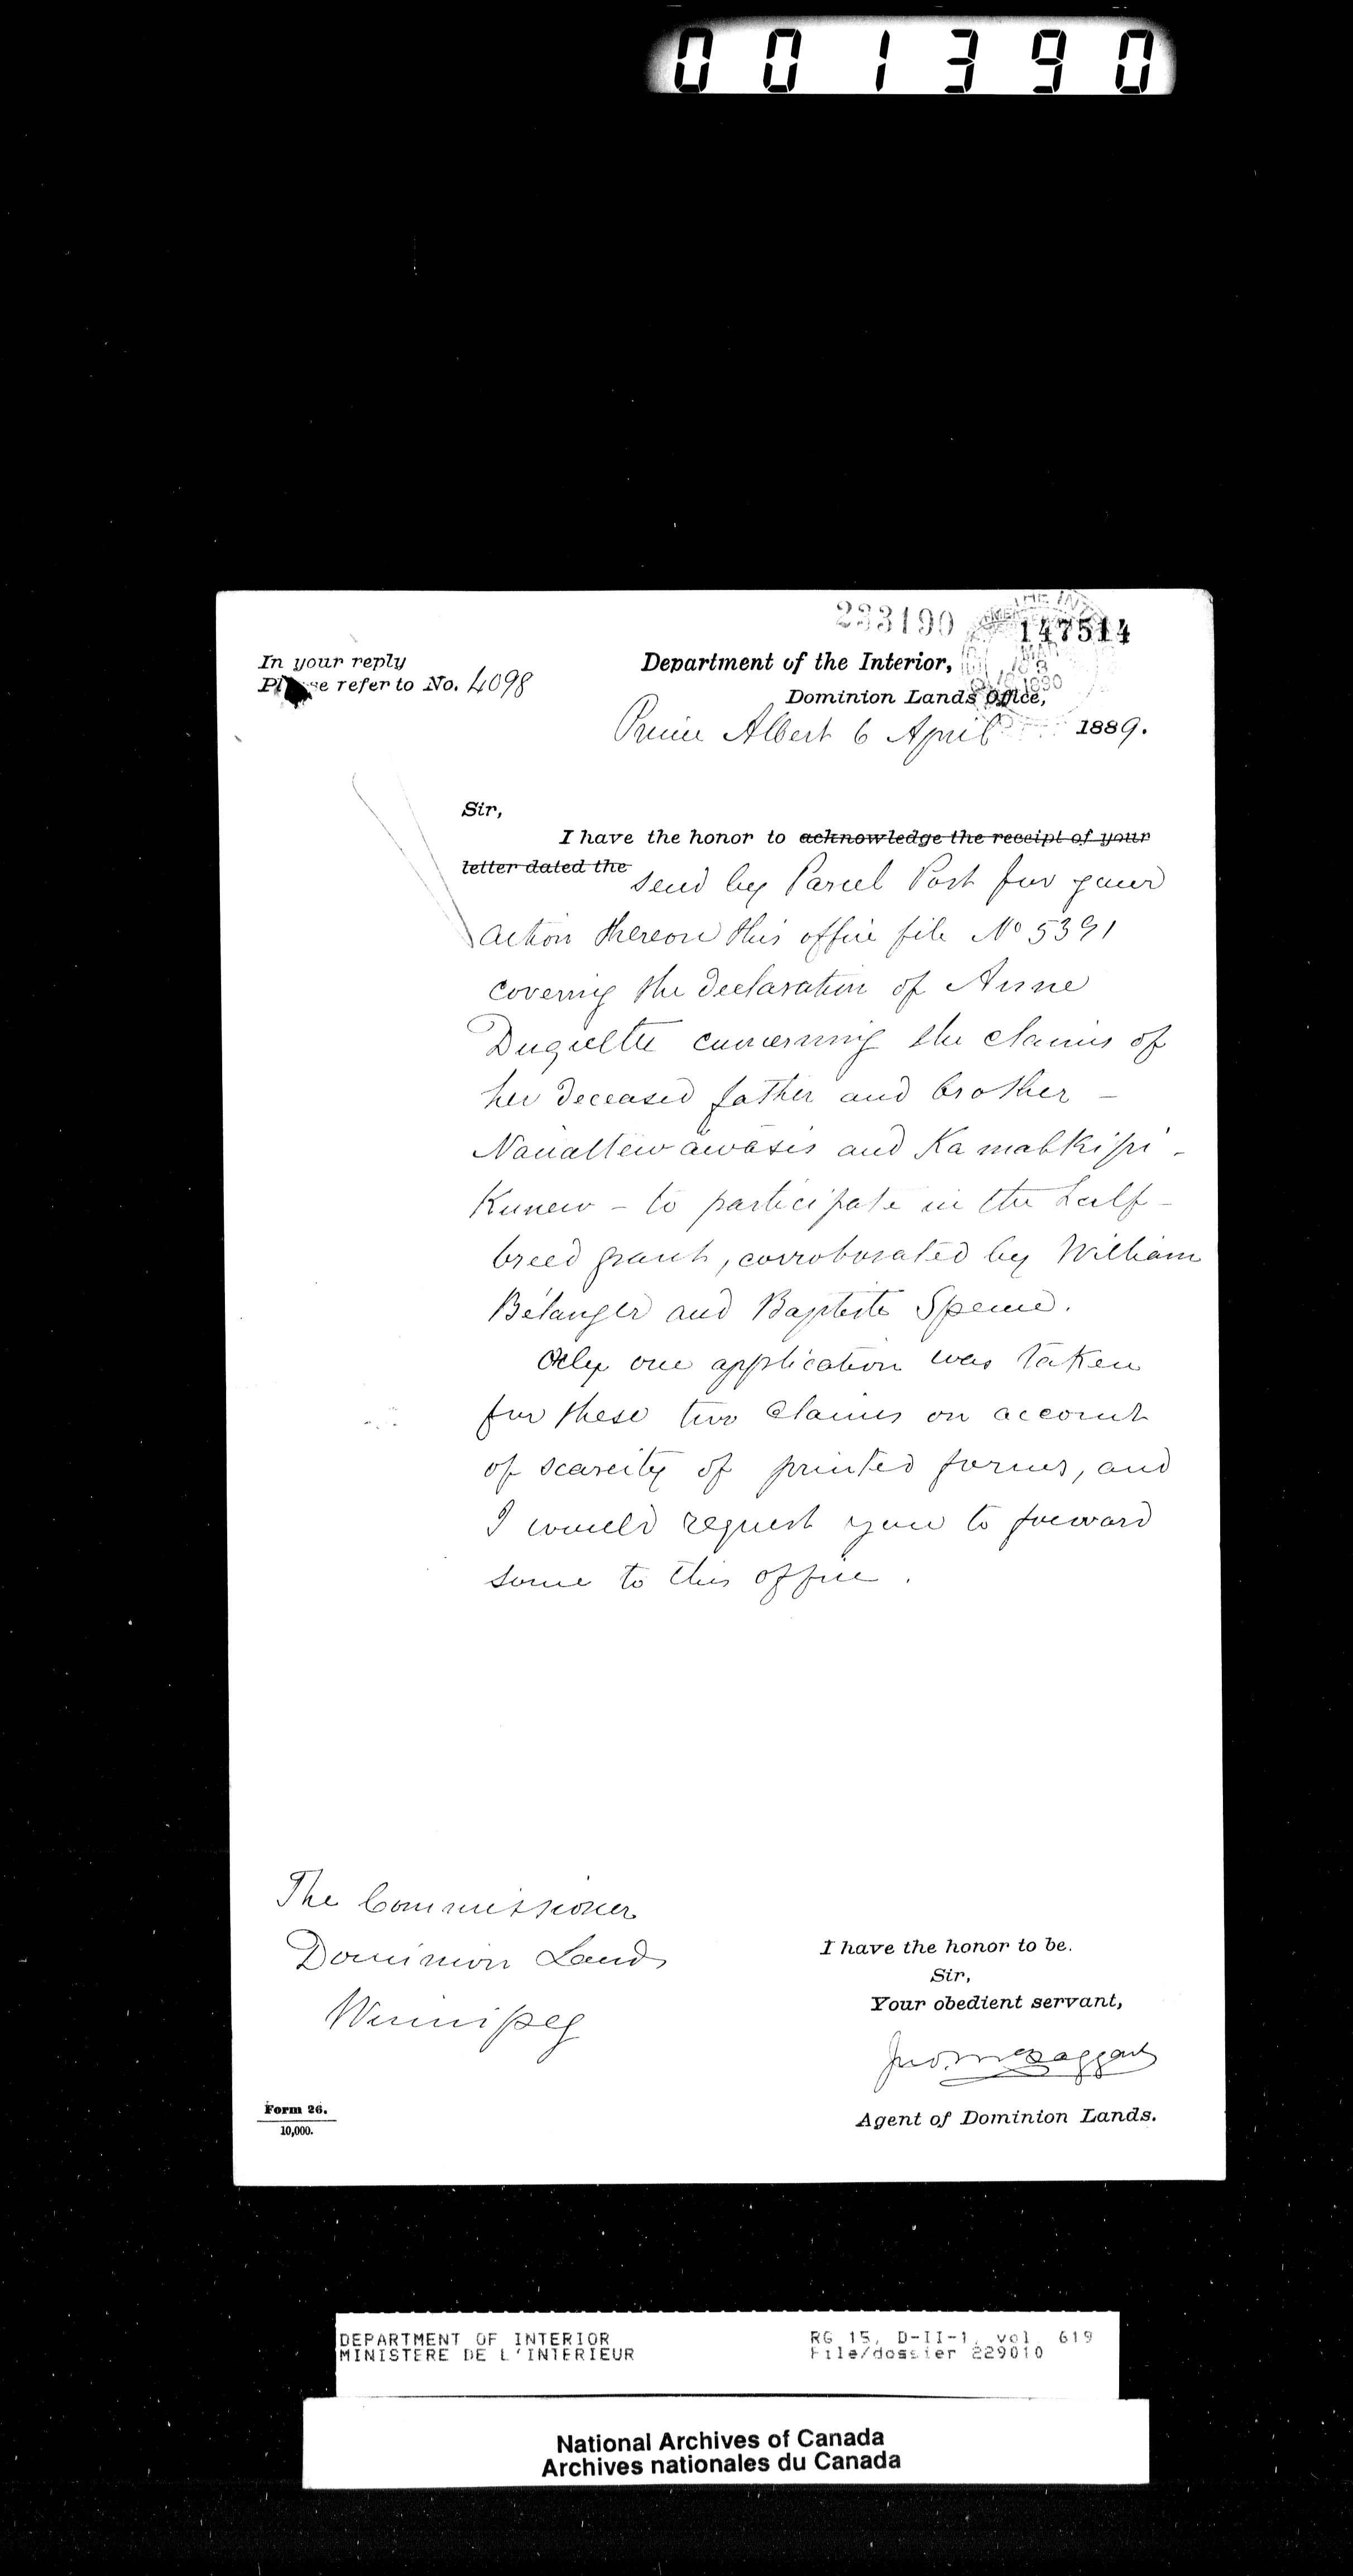 001390
233190
147514
In your reply
Please refer to No. 4098
Department of the Interior,
Dominion Lands Office,
Prince Albert 6 April 1889.
Sir,
I have the honor to acknowledge the receipt of your
letter dated the
send by Parcel Post for your
action thereon this office file No 5391
covering the declaration of Anne
Duquette concerning the claims of
her deceased father and brother -
Nanattewawasis and Kamahkipi-
Kunew - to participate in the half-
breed grant, corroborated by William
Bélanger and Baptiste Spence.
Only one application was taken
for these two claims on account
of scarcity of printed forms, and
I would request you to forward
some to this office.
The Commissioner
Dominion Lands
Winnipeg
I have the honor to be.
Sir,
Your obedient servant,
Jno. McTaggart
Agent of Dominion Lands.
Form 26.
10,000.
DEPARTMENT OF INTERIOR
MINISTERE DE L'INTERIEUR
RG 15, D-II-1, vol 619
File/dossier 229010
National Archives of Canada
Archives nationales du Canada